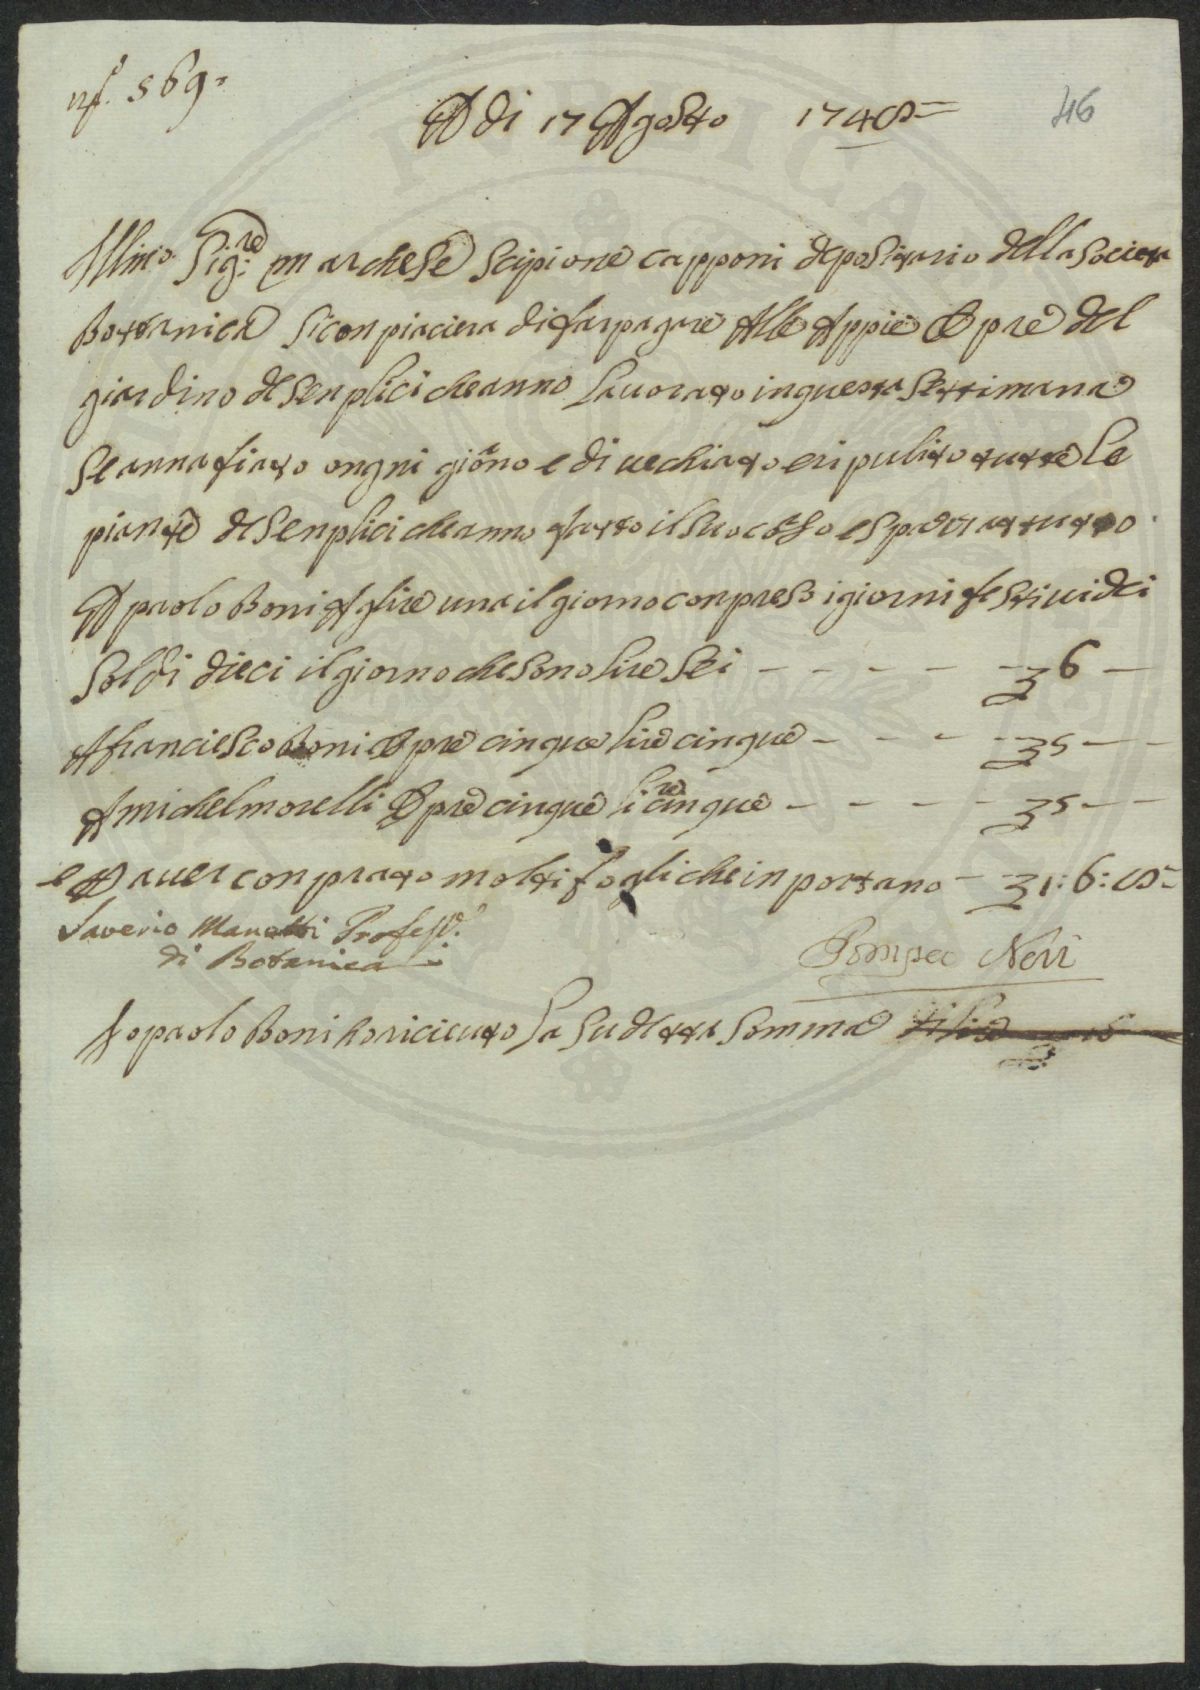 nº. 569.
46
A di 17 Agosto 1748
Illmo. Sig:re marchese Scipione capponi depositario della Societa
Bottanica si conpiacera di far pagare Alle Appie Opre del
giardino de Senplici che anno Lavorato in questa Settimana
Se annafiato ongni giōrno e di uechiato e ripulito tutte Le
piante de Senplici che anno fatto il suo e per tutto
A paolo Boni A lire una il giorno conpreso i giorni festiui di
Soldi dieci il giorno che sono lire Sei - - - - - 6 -
A franciesco Boni Opre cinque lire cinque - - - - 5 - -
A michel morelli Opre cinque lire cinque - - - - - 5 - -
e A auer conprato molti fogli che inportano - 1: 6: 8
Saverio Manetti Profess.
di Botanica
Pompeo Neri
Io paolo Boni ho riceuuto La Sudetta Somma